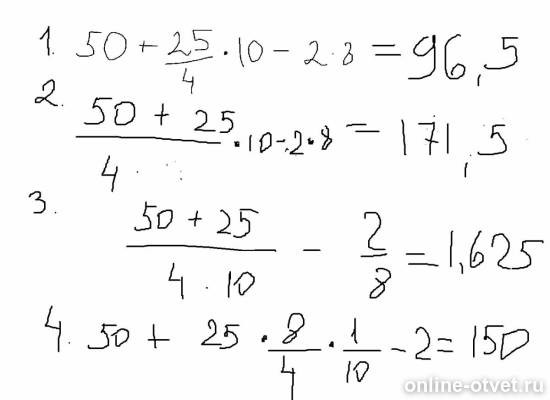 1. 50 + 25/4 · 10 - 2 · 8 = 96,5
2. (50 + 25)/4 · 10 - 2 · 8 = 171,5
3. (50 + 25)/(4 · 10) - 2/8 = 1,625
4. 50 + 25 · 8/4 · 1/10 - 2 = 150
online-otvet.ru